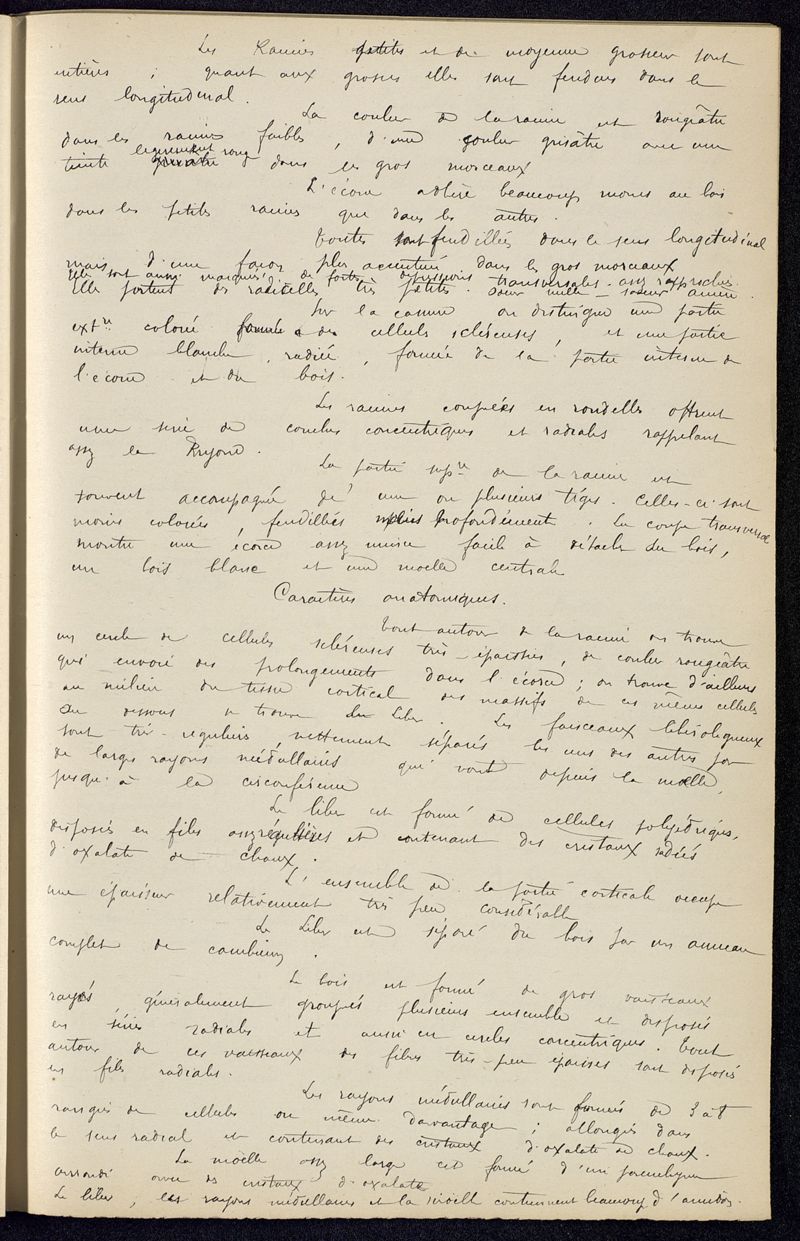 Les Racines petites et de moyenne grosseur sont
entières ; quant aux grosses elles sont fendues dans le
sens longitudinal.
La couleur de la racine est rougeâtre
dans les racines faibles, d'une couleur grisâtre avec une
teinte legerement roug dans les gros morceaux
L'écorce adhère beaucoup moins au bois
dans les petites racines que dans les autres.
toutes sont fendillées dans le sens longitudinal
mais d'une façon plus accentuée dans les gros morceaux
elle sont aussi marquées de fortes depressions transversales assez rapprochées
Elle portent des radicelles très petites. odeur nulle - saveur amère.
Sur la cassure on distingue une partie
extre colorée formée de cellules scléreuses, et une partie
interne blanche, radiée, formée de la partie interne de
l'écorce et du bois.
Les racines coupées en rondelles offrent
une série de couches concentriques et radiales rappelant
assez le
La partie supre de la racine est
souvent accompagnée de une ou plusieurs tiges. Celles-ci sont
moins colorées, fendillées moins profondément. La coupe transversale
montre une écorce assez mince facile à détacher du bois,
un bois blanc et une moelle centrale
Caractères anatomiques.
tout autour de la racine on trouve
un cercle de cellules scléreuses très-épaissies, de couleur rougeâtre
qui envoie des prolongements dans l'écorce ; on trouve d'ailleurs
au milieu du tissu cortical des massifs de ces mêmes cellules
Au dessous se trouve du liber. Les faisceaux libéroligneux
sont très-reguliers, nettement séparés les uns des autres par
de larges rayons médullaires qui vont depuis la moelle,
jusqu'à la circonférence
Le liber est formé de cellules polyédriques,
disposées en files assez régulières et contenant des cristaux radiés
d'oxalate de chaux.
L'ensemble de la partie corticale occupe
une épaisseur relativement très peu considérable
Le Liber est séparé du bois par un anneau
complet de cambium.
Le bois est formé de gros vaisseaux
rayés généralement groupés plusieurs ensemble et disposés
en séries radiales et aussi en cercles concentriques. Tout
autour de ces vaisseaux des fibres très-peu épaisses sont disposés
en files radiales.
Les rayons médullaires sont formés de 3 à 8
rangées de cellules ou même davantage ; allongées dans
le sens radial et contenant des cristaux d'oxalate de chaux.
La moelle assez large est formé d'un parenchyme
arrondi avec des cristaux d'oxalate
Le liber, les rayons médullaires et la moelle contiennent beaucoup d'amidon.